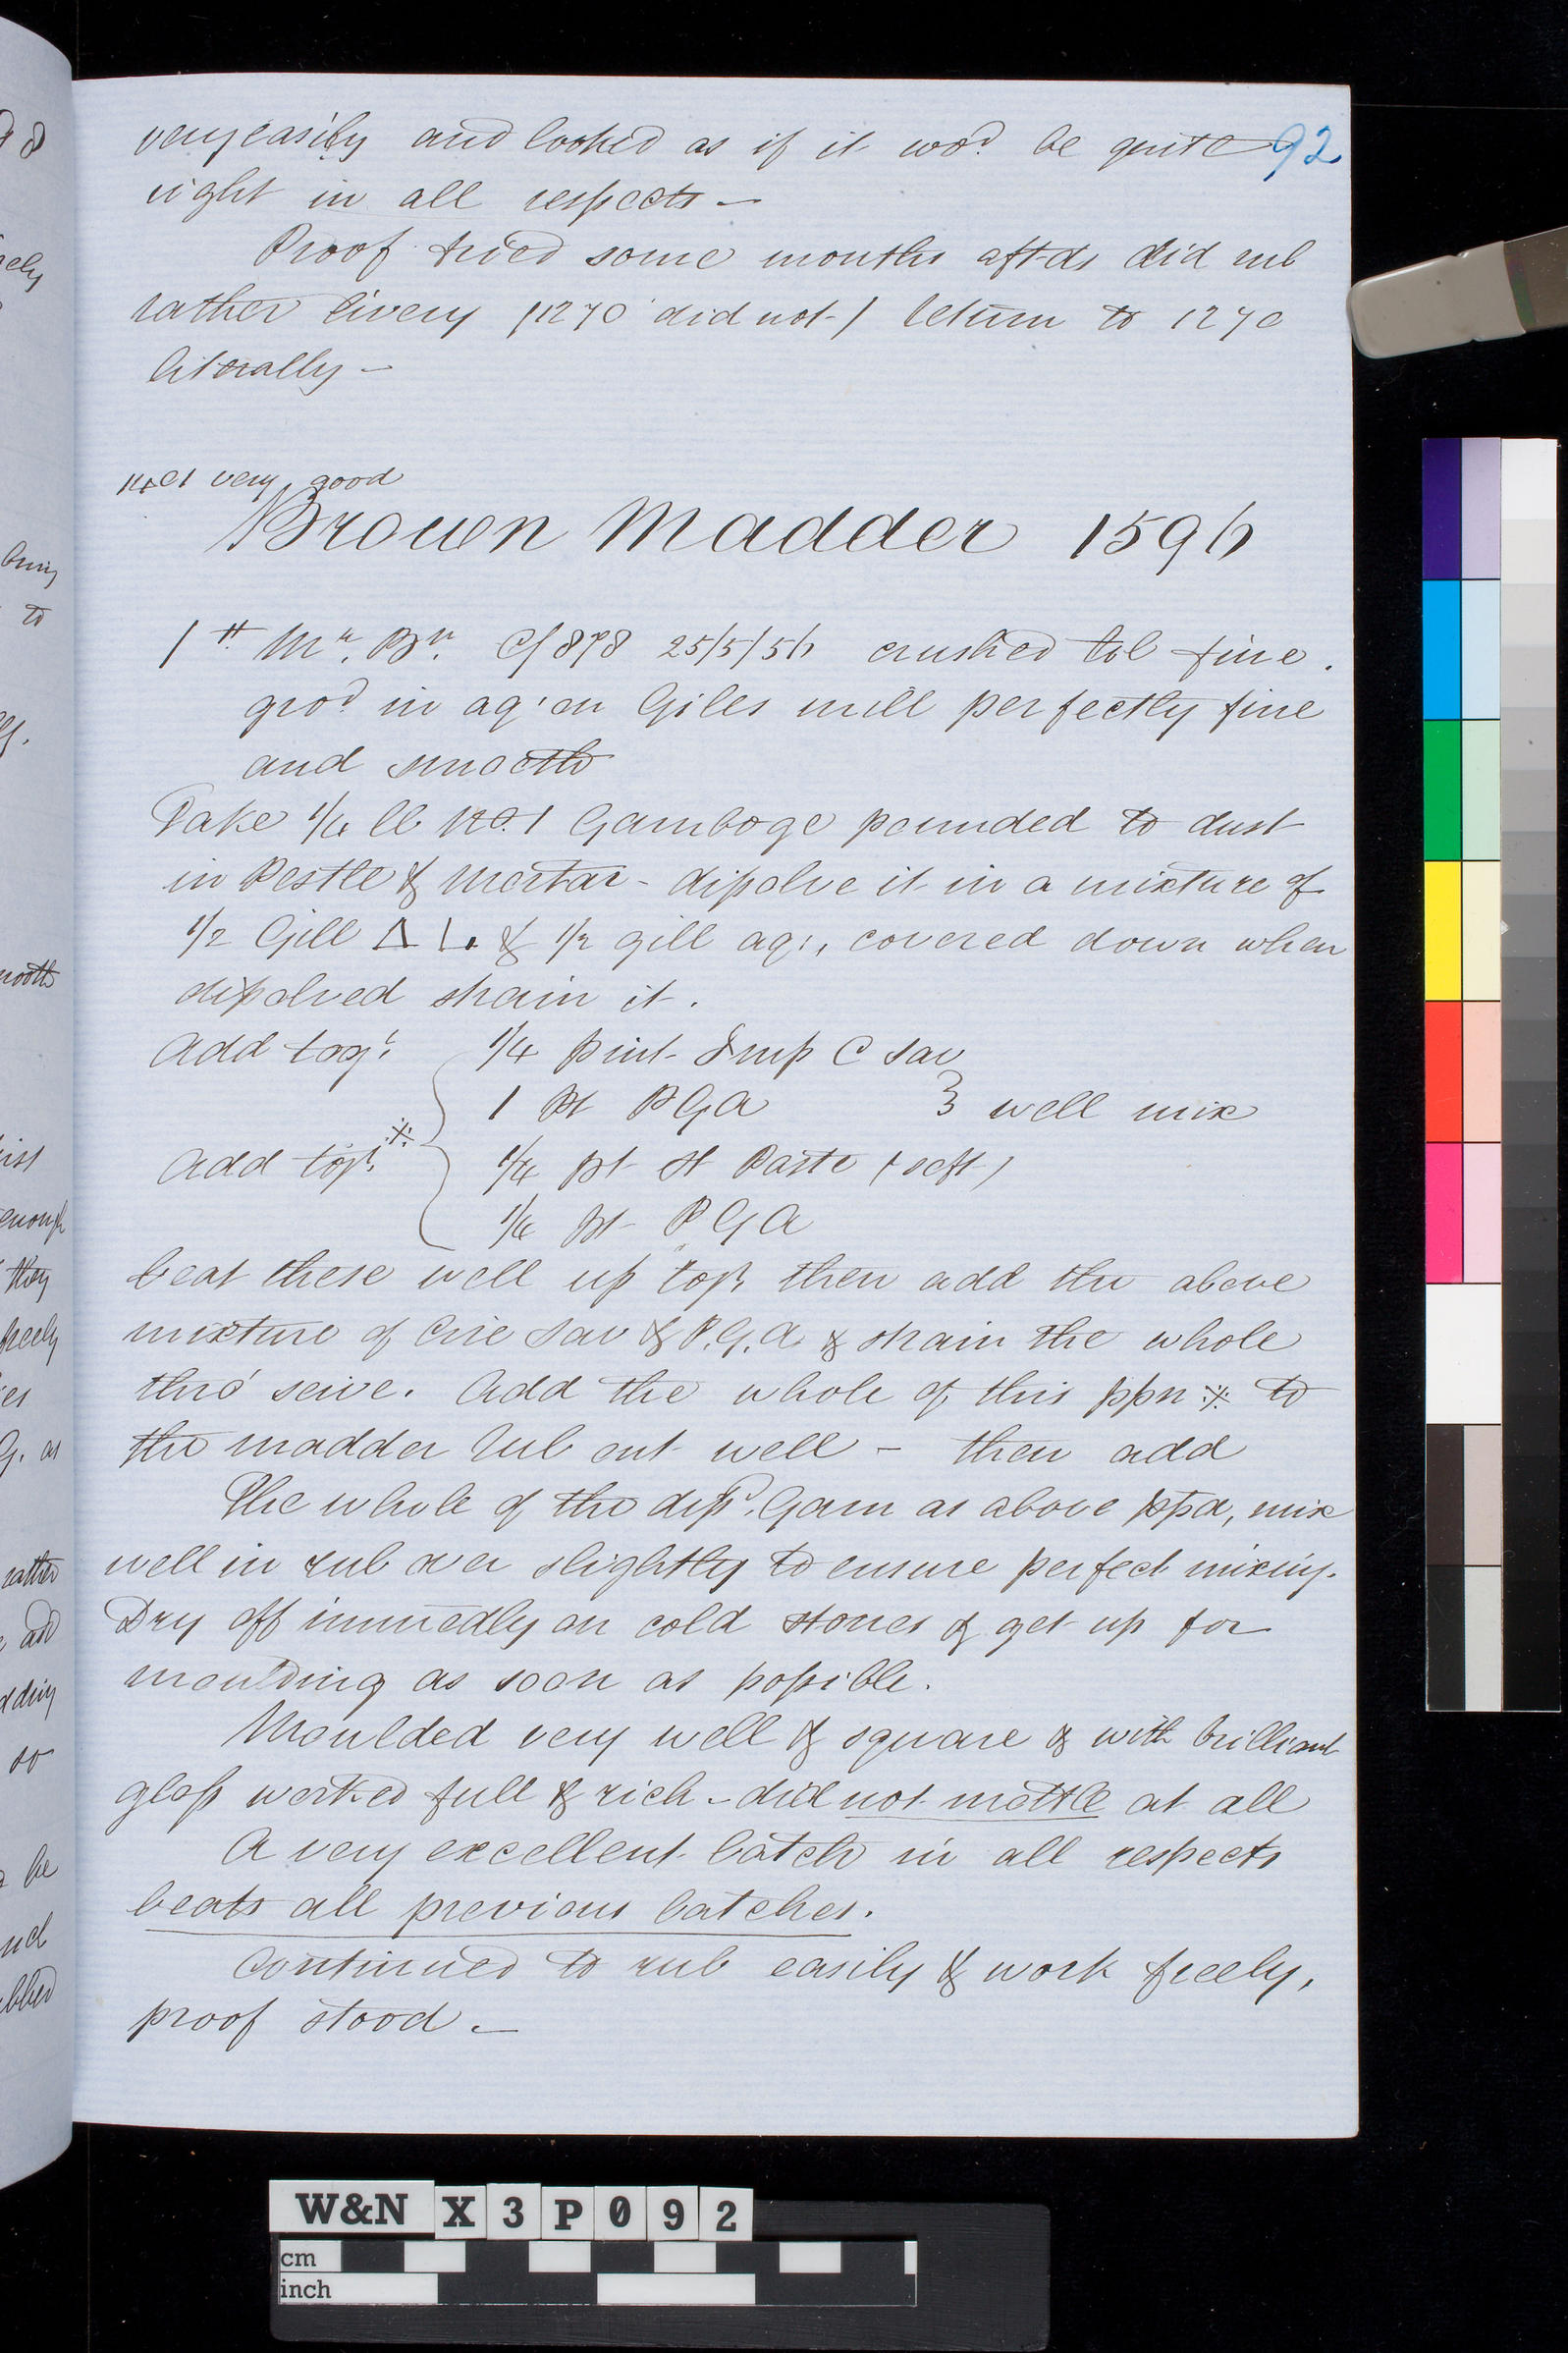 very easily and looked as if it wod. be quite 92
right in all respects —
Proof tried some months aftds did rub
rather livery (1270 did not) Return to 1270
literally —
No 1 very good
Brown Madder 1596
1 lb Mr. Bn. C/898 25/5/56 crushed tol fine.
grod in aq: on Giles mill perfectly fine
and smooth
Take 1/4 lb No. 1 Gamboge pounded to dust
in Pestle & Mortar - dissolve it in a mixture of
1/2 Gill & 1/2 gill aq:, covered down when
dissolved strain it.
Add togr. 1/4 pint Emp C Sav
1 pt P G A } well mix
Add togr. ※ 1/4 pt St Paste (soft)
1/4 pt P G A
beat these well up togr, then add the above
mixture of Cire Sav & P.G.A & strain the whole
thro' seive. Add the whole of this ppn ※ to
the madder Rub out well — then add
The whole of the dissd. Gam as above ppd, mix
well in rub over slightly to ensure perfect mixing.
Dry off immedly on cold stones & get up for
moulding as soon as possible.
Moulded very well & square & with brilliant
gloss worked full & rich - did not mottle at all
A very excellent batch in all respects
beats all previous batches.
Continued to rub easily & work freely,
proof stood. —
W&N X 3 P 0 9 2
cm
inch